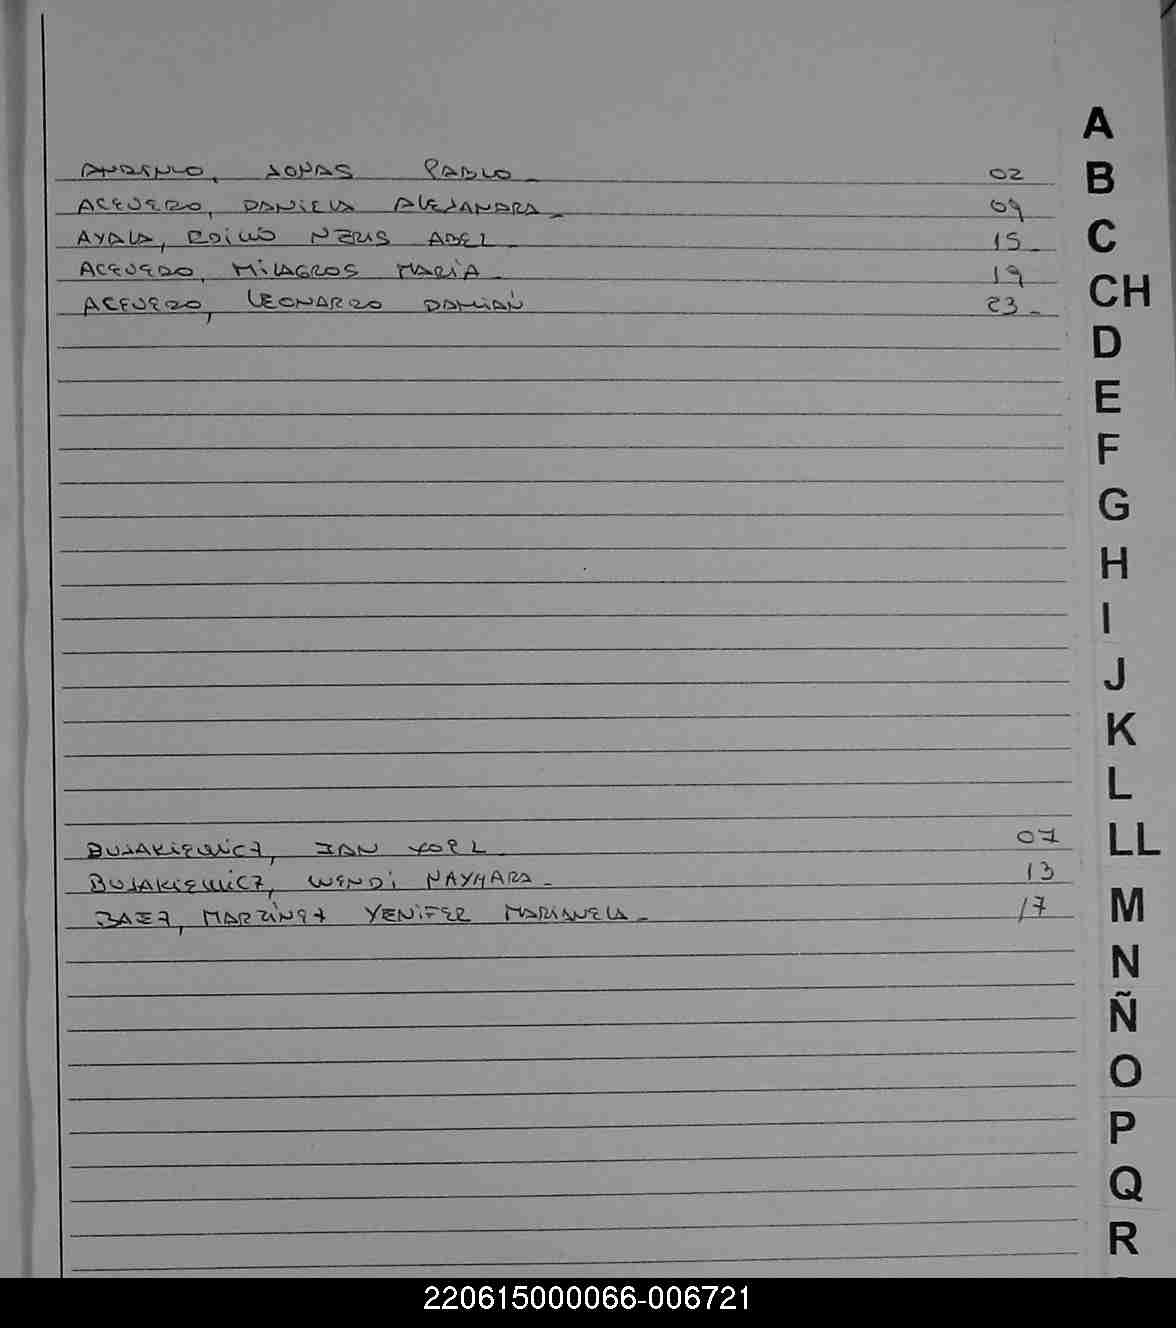 A
ANDINO, JONAS PABLO 02
B
ACEVEDO, DANIELA ALEJANDRA 09
AYALA, NERIS ABEL 15
C
ACEVEDO, MILAGROS MARIA 19
ACEVEDO, LEONARDO DAMIAN 23
CH
D
E
F
G
H
I
J
K
L
BUJAKIEWICZ, IAN YOEL 07
LL
BUJAKIEWICZ, WENDI NAYHARA 13
BAEZ, MARTINEZ YENIFER MARIANELA 17
M
N
Ñ
O
P
Q
R
220615000066-006721